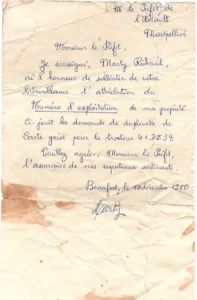 Mr le Préfet de
l'Hérault
Montpellier
Monsieur le Préfet,
Je soussigné, Martz Richard,
ai l'honneur de solliciter de votre
bienveillance l'attribution du
Numéro d'exploitation de ma propriété
Ci joint la demande de duplicata de
Carte grise pour le tracteur 41DZ34.
Veuillez agréer, Monsieur le Préfet,
l'assurance de mes respectueux sentiments.
Beaufort, le 10 décembre 1980
Martz